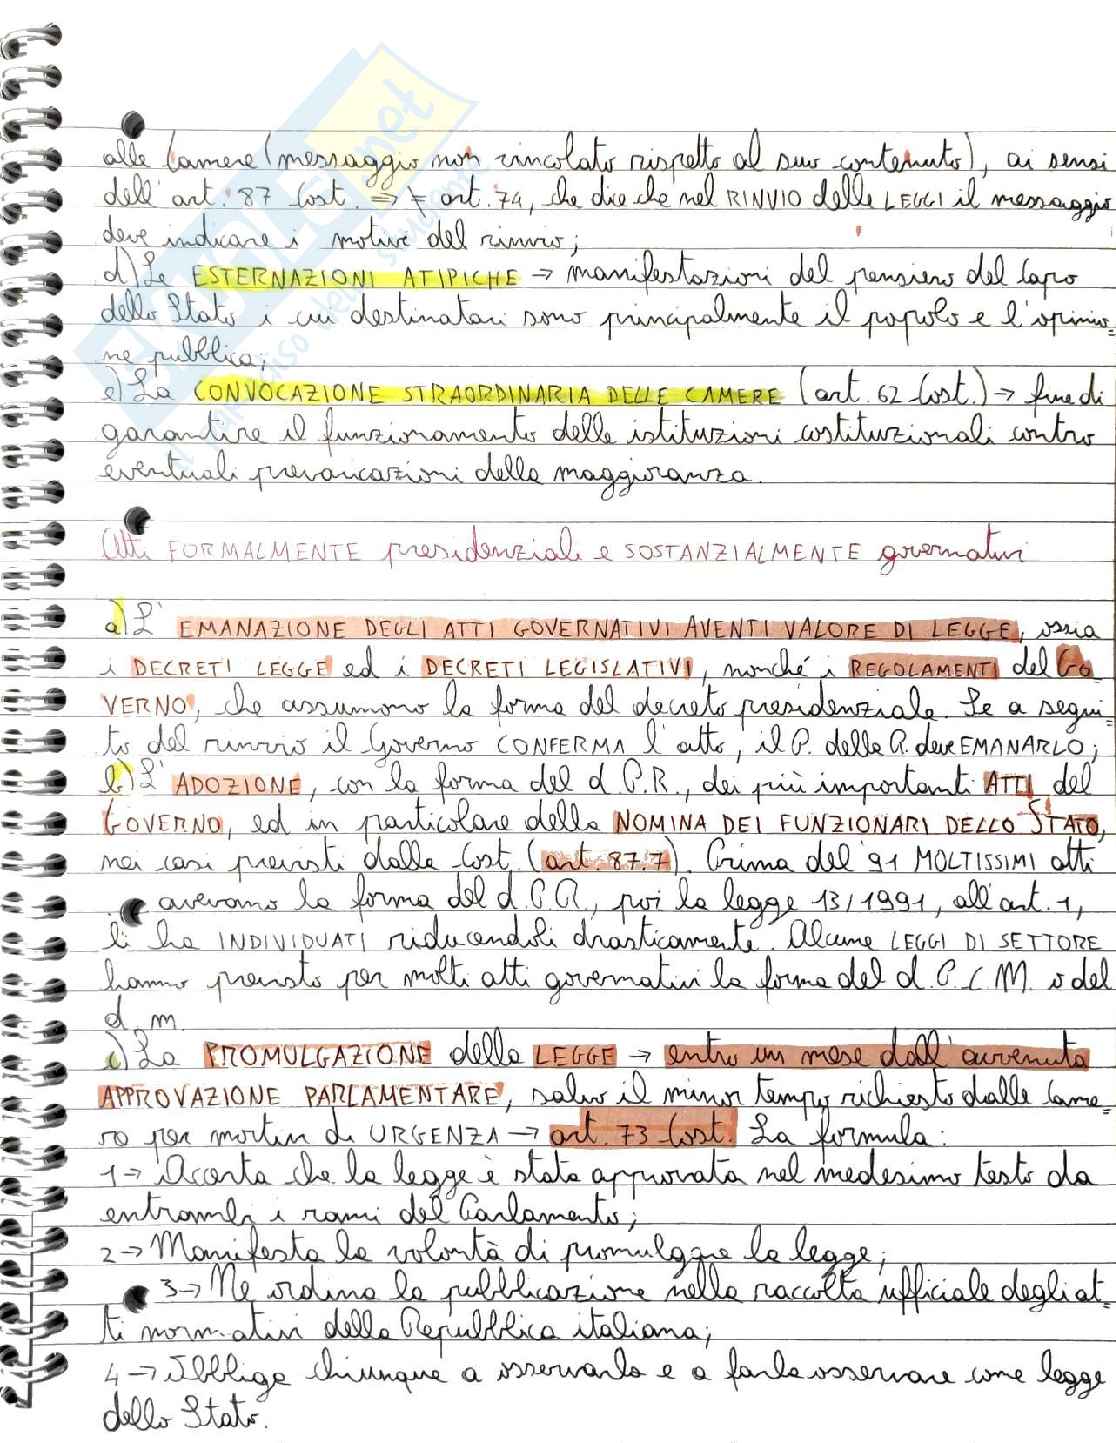 alle Camere (messaggio non vincolato rispetto al suo contenuto), ai sensi
dell'art. 87 Cost. => ≠ art. 74, che dice che nel RINVIO delle LEGGI il messaggio
deve indicare i motivi del rinvio;
d) Le ESTERNAZIONI ATIPICHE → manifestazioni del pensiero del Capo
dello Stato i cui destinatari sono principalmente il popolo e l'opinio=
ne pubblica;
e) La CONVOCAZIONE STRAORDINARIA DELLE CAMERE (art. 62 Cost.) → fine di
garantire il funzionamento delle istituzioni costituzionali contro
eventuali prevaricazioni della maggioranza.
Atti FORMALMENTE presidenziali e SOSTANZIALMENTE governativi
a) L'EMANAZIONE DEGLI ATTI GOVERNATIVI AVENTI VALORE DI LEGGE, ossia
i DECRETI LEGGE ed i DECRETI LEGISLATIVI, nonché i REGOLAMENTI del GO
VERNO, che assumono la forma del decreto presidenziale. Se a segui=
to del rinvio il Governo CONFERMA l'atto, il P. della R. deve EMANARLO;
b) L'ADOZIONE, con la forma del d.P.R., dei più importanti ATTI del
GOVERNO, ed in particolare della NOMINA DEI FUNZIONARI DELLO STATO,
nei casi previsti dalla Cost. (art. 87.7). Prima del '91 MOLTISSIMI atti
avevano la forma del d.P.R., poi la legge 13/1991, all'art. 1,
li ha INDIVIDUATI riducendoli drasticamente. Alcune LEGGI DI SETTORE
hanno previsto per molti atti governativi la forma del d.P.C.M. o del
d.m.
c) La PROMULGAZIONE della LEGGE → entro un mese dall'avvenuta
APPROVAZIONE PARLAMENTARE, salvo il minor tempo richiesto dalle Came=
re per motivi di URGENZA → art. 73 Cost. La formula:
1→ Accerta che la legge è stata approvata nel medesimo testo da
entrambi i rami del Parlamento;
2→ Manifesta la volontà di promulgare la legge;
3→ Ne ordina la pubblicazione nella raccolta ufficiale degli at=
ti normativi della Repubblica italiana;
4→ Obbliga chiunque a osservarla e a farla osservare come legge
dello Stato.